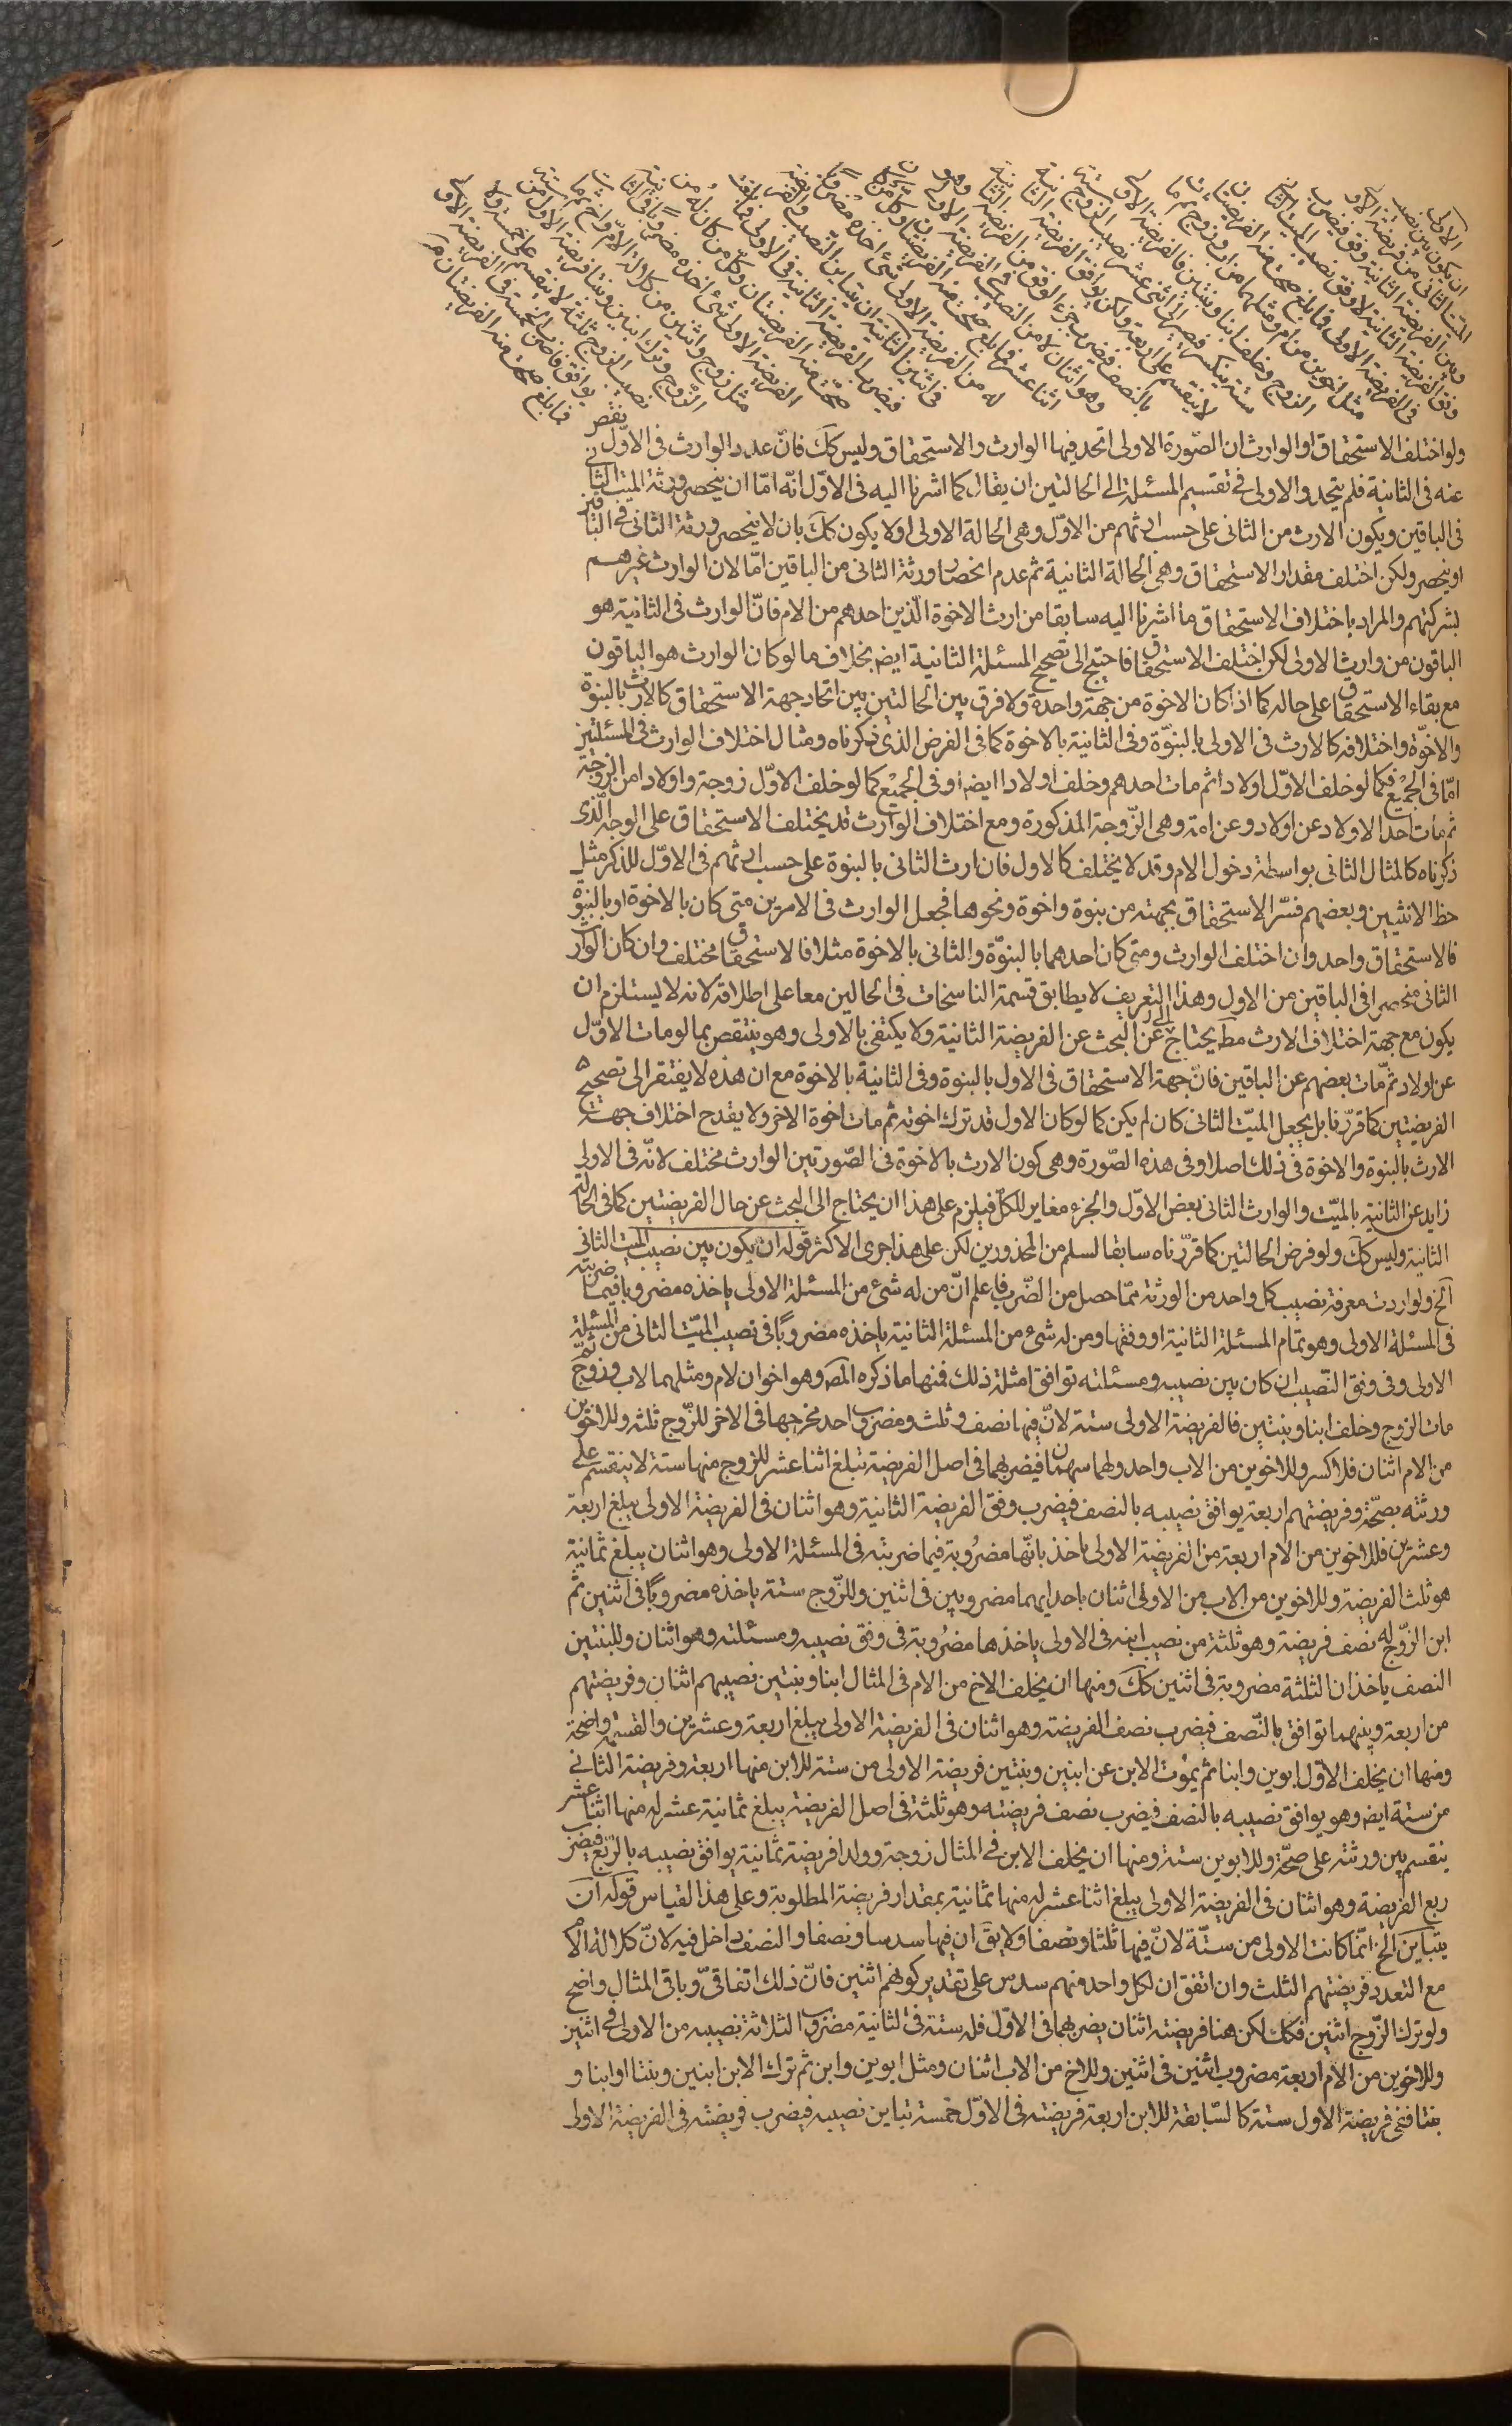 الاولى
ان يكون بين نصيب
الميت الثانى من فريضة الاول
وبين الفريضة الثانية وفق فيضرب
وفق الفريضة الثانية لا وفق نصيب الميت الثانى
فى الفريضة الاولى فما بلغ صحت منه الفريضتان
مثل اخوين من ام ومثلهما من اب وزوج ثم مات
الزوج وخلف ابنا وبنتين فالفريضة الاولى
ستة ينكسر فيصير الى اثنى عشر نصيب الزوج ستة
لا ينقسم على اربعة ولكن يوافق الفريضة الثانية
بالنصف فيضرب جزء الوفق من الفريضة الثانية
وهو اثنان لا من النصيب فى الفريضة الاولى وهو
اثنا عشر فما بلغ صحت منه الفريضتان وكل من كان
له من الفريضة الاولى شئ اخذه مضروبا
فى اثنين الثالثة ان يتباين النصيب والفريضة
فيضرب الفريضة الثانية فى الاولى فما بلغ
صحت منه الفريضتان وكل من كان له من
الفريضة الاولى شئ اخذه مضروبا فى الثانية
مثل زوج واثنين من كلالة الام واخ ثم مات
الزوج وترك ابنين وبنتا فريضة الاول من ستة
نصيب الزوج ثلثة لا ينقسم على خمسة ولا
يوافق فاضرب الخمسة فى الفريضة الاولى
فما بلغ صحت منه الفريضتان
ولو اختلف الاستحقاق او الوارث ان الصّورة الاولى اتحد فيها الوارث والاستحقاق وليس كك فانّ عدد الوارث فى الاوّل نقص
عنه فى الثانية فلم يتحد والاولى فى تقسيم المسئلة الى الحالتين ان يقال كما اشرنا اليه فى الاوّل انّه امّا ان ينحصر ورثة الميت الثانى
فى الباقين ويكون الارث من الثانى على حسب ارثهم من الاوّل وهى الحالة الاولى او لا يكون كك بان لا ينحصر ورثة الثانى فى الباقين
او ينحصر ولكن اختلف مقدار الاستحقاق وهى الحالة الثانية ثم عدم انحصار ورثة الثانى من الباقين امّا لان الوارث غيرهم
بشركتهم والمراد باختلاف الاستحقاق ما اشرنا اليه سابقا من ارث الاخوة الّذين احدهم من الام فانّ الوارث فى الثانية هو
الباقون من وارث الاولى لكن اختلف الاستحقاق فاحتيج الى تصحيح المسئلة الثانية ايض بخلاف ما لو كان الوارث هو الباقون
مع بقاء الاستحقاق على حاله كما اذا كان الاخوة من جهة واحدة ولا فرق بين الحالتين بين اتحاد جهة الاستحقاق كالارث بالبنوة
والاخوّة واختلافه كالارث فى الاولى بالبنوّة وفى الثانية بالاخوة كما فى الفرض الذى ذكرناه ومثال اختلاف الوارث فى المسئلتين
امّا فى الجميع فكما لو خلف الاوّل اولادا ثم مات احدهم وخلف اولادا ايضا او فى الجميع كما لو خلف الاوّل زوجة واولادا من الزوجة
ثم مات احد الاولاد عن اولاد وعن امة وهى الزّوجة المذكورة ومع اختلاف الوارث قد يختلف الاستحقاق على الوجه الّذى
ذكرناه كالمثال الثانى بواسطة دخول الام وقد لا يختلف كالاول فان ارث الثانى بالبنوة على حسب ارثهم فى الاوّل للذكر مثل
حظ الانثيين وبعضهم فسّر الاستحقاق بجهته من بنوة واخوة ونحوها فجعل الوارث فى الامرين متى كان بالاخوة او بالبنوة
فالاستحقاق واحد وان اختلف الوارث ومتى كان احدهما بالبنوّة والثانى بالاخوة مثلا فالاستحقاق مختلف وان كان الوارث
الثانى منحصرا فى الباقين من الاول وهذا التعريف لا يطابق قسمة الناسخات فى الحالين معا على اطلاقه لانه لا يستلزم ان
يكون مع جهة اختلاف الارث مط يحتاج الى عن البحث عن الفريضة الثانية ولا يكتفى بالاولى وهو ينتقض بما لو مات الاوّل
عن اولاد ثمّ مات بعضهم عن الباقين فانّ جهة الاستحقاق فى الاول بالبنوة وفى الثانية بالاخوة مع ان هذه لا يفتقر الى تصحيح
الفريضتين كما قرّرنا بل يجعل الميّت الثانى كان لم يكن كما لو كان الاول قد ترك اخوته ثم مات اخوة الاخر ولا يقدح اختلاف جهتيه
الارث بالبنوة والاخوة فى ذلك اصلا وفى هذه الصّورة وهى كون الارث بالاخوة فى الصّورتين الوارث مختلف لانّه فى الاولى
زايد عن الثانية بالميّت والوارث الثانى بعض الاوّل والجزء مغاير للكلّ فيلزم على هذا ان يحتاج الى البحث عن حال الفريضتين كما فى الحالة
الثانية وليس كك ولو فرض الحالتين كما قرّرناه سابقا لسلم من المحذورين لكن على هذا جرى الاكثر قوله ان يكون بين نصيب الميت الثانى
الخ ولو اردت معرفة نصيب كل واحد من الورثة ممّا حصل من الضّرب فاعلم انّ من له شئ من المسئلة الاولى ياخذه مضروبا فيما ضربته
فى المسئلة الاولى وهو تمام المسئلة الثانية او وفقها ومن له شئ من المسئلة الثانية ياخذه مضروبًا فى نصيب الميّت الثانى من المسئلة
الاولى وفى وفق النّصيب ان كان بين نصيبه ومسئلته توافق امثلة ذلك فمنها ما ذكره المص وهو اخوان لام ومثلهما لاب وزوج ثمّ
مات الزوج وخلف ابنا وبنتين فالفريضة الاولى ستة لانّ فيها نصف وثلث ومضروب احد مخرجها فى الاخر للزّوج ثلثة وللاخوين
من الام اثنان فلا كسر وللاخوين من الاب واحد ولهما سهمان فيضربهما فى اصل الفريضة تبلغ اثنا عشر للزوج منها ستة لا ينقسم على
ورثته بصحّة وفريضتهم اربعة يوافق نصيبه بالنصف فيضرب وفق الفريضة الثانية وهو اثنان فى الفريضة الاولى يبلغ اربعة
وعشرين فللاخوين من الام اربعة من الفريضة الاولى ياخذ بانّها مضرُوبة فيما ضربته فى المسئلة الاولى وهو اثنان يبلغ ثمانية
هو ثلث الفريضة وللاخوين من الاب من الاولى اثنان ياخدانهما مضروبين فى اثنين وللزّوج ستة ياخذه مضروبًا فى اثنين ثم
ابن الزّوج له نصف فريضة وهو ثلثة من نصيب ابنه فى الاولى ياخذها مضرُوبة فى وفق نصيبه ومسئلته وهو اثنان وللبنتين
النصف ياخذان الثلثة مضروبة فى اثنين كك ومنها ان يخلف الاخ من الام فى المثال ابنا وبنتين نصيبهم اثنان وفريضتهم
من اربعة وبينهما توافق بالنّصف فيضرب نصف الفريضة وهو اثنان فى الفريضة الاولى يبلغ اربعة وعشرين والقسمة واضحة
ومنها ان يخلف الاوّل ابوين وابنا ثم يموُت الابن عن ابنين وبنتين فريضة الاولى من ستة للابن منها اربعة وفريضة الثانى
من ستة ايض وهو يوافق نصيبه بالنصف فيضرب نصف فريضته وهو ثلثة فى اصل الفريضة يبلغ ثمانية عشر له منها اثنا عشر
ينقسم بين ورثته على صحّة وللابوين ستة ومنها ان يخلف الابن فى المثال زوجة وولدا فريضة ثمانية يوافق نصيبه بالرّبع فيضرب
ربع الفريضة وهو اثنان فى الفريضة الاولى يبلغ اثنا عشر له منها ثمانية بمقدار فريضة المطلوبة وعلى هذا القياس قوله ان
يتباين الخ انّما كانت الاولى من ستّة لانّ فيها ثلثا ونصفا ولا يقال ان فيها سدسا ونصفا والنصف داخل فيه لانّ كلالة الام
مع التعدد فريضتهم الثلث وان اتفق ان لكل واحد منهم سدس على تقدير كونهم اثنين فانّ ذلك اتفاقىّ وباقى المثال واضح
ولو ترك الزّوج اثنين فكك لكن هنا فريضته اثنان يضربهما فى الاوّل فله ستة فى الثانية مضروب الثلاثة نصيبه من الاولى فى اثنين
وللاخوين من الام اربعة مضروب اثنين فى اثنين وللاخ من الاب اثنان ومثل ابوين وابن ثم ترك الابن ابنين وبنتا او ابنا و
بنتا ففى فريضة الاول ستة كالسّابقة للابن اربعة فريضته فى الاوّل خمسة تباين نصيبه فيضرب فريضته فى الفريضة الاولى